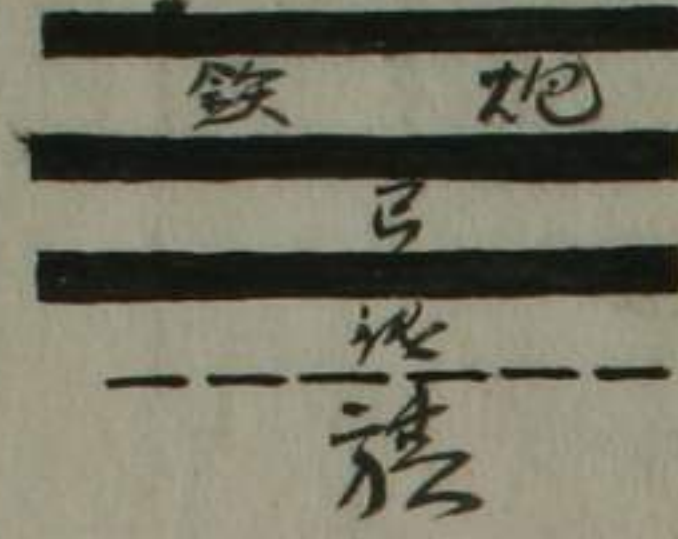 鉄炮
弓
旗